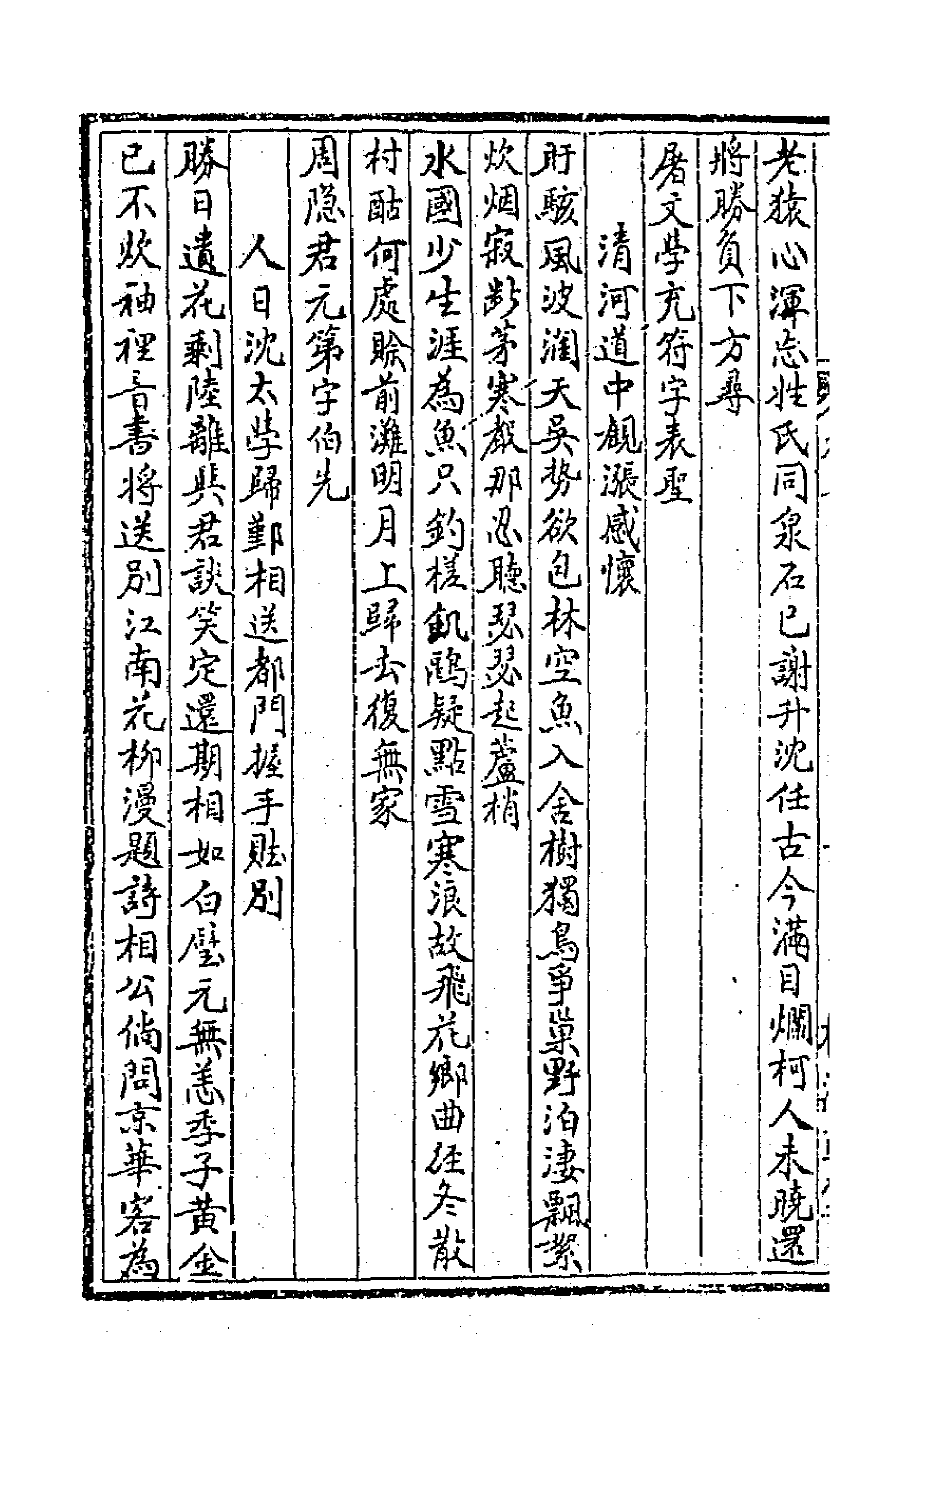 老猿心渾忘姓氏同泉石已謝升沈任古今滿目爛柯人未曉還
將勝負下方尋
屠文學充符字表聖
清河道中観漲感懷
盱駭風波濶天吳勢欲包林空魚入舍樹獨鳥爭巢野泊淒飄絮
炊烟寂断茅寒聲那忍聽瑟瑟起蘆梢
水國少生涯為魚只釣槎飢鷗疑點雪寒浪故飛花鄉曲徑冬散
村酤何處賒前灘明月上歸去復無家
周隐君元第字伯先
人日沈太学歸鄞相送都門握手賦別
勝日遺花剩陸離與君談笑定還期相如白璧元無恙季子黄金
已不炊袖裡音書将送別江南花柳漫題詩相公倘問京華客為